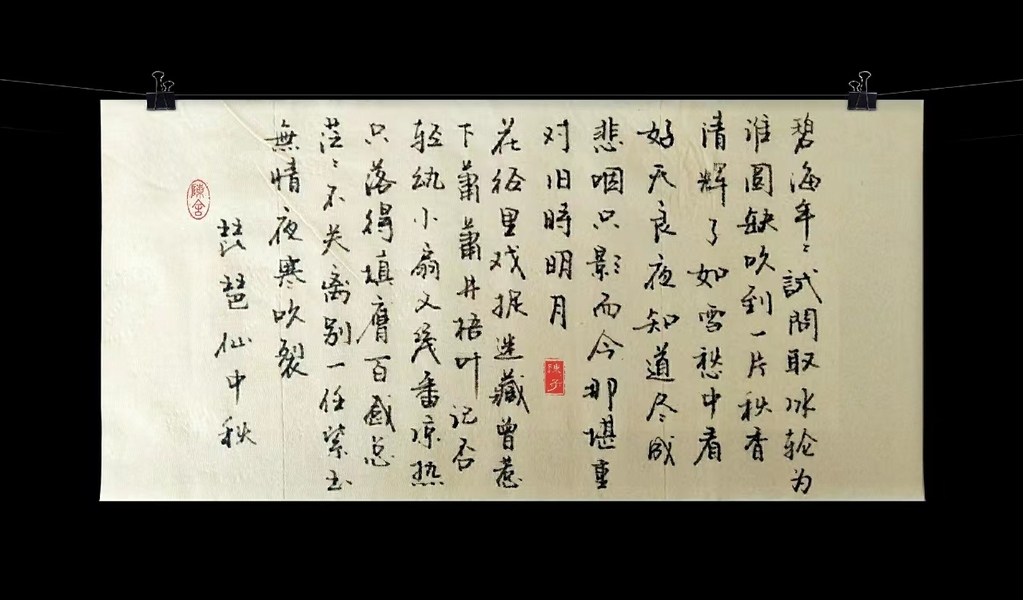 碧海年々試問取冰轮为
谁圓缺吹到一片秋香
清輝了如雪愁中看
好天良夜知道尽成
悲咽只影而今那堪重
对旧時明月
花径里戏捉迷藏曾惹
下蕭蕭井梧叶记否
轻纨小扇又幾番凉热
只落得填膺百感总
茫々不关离别一任紫玉
無情夜寒吹裂
琵琶仙中秋